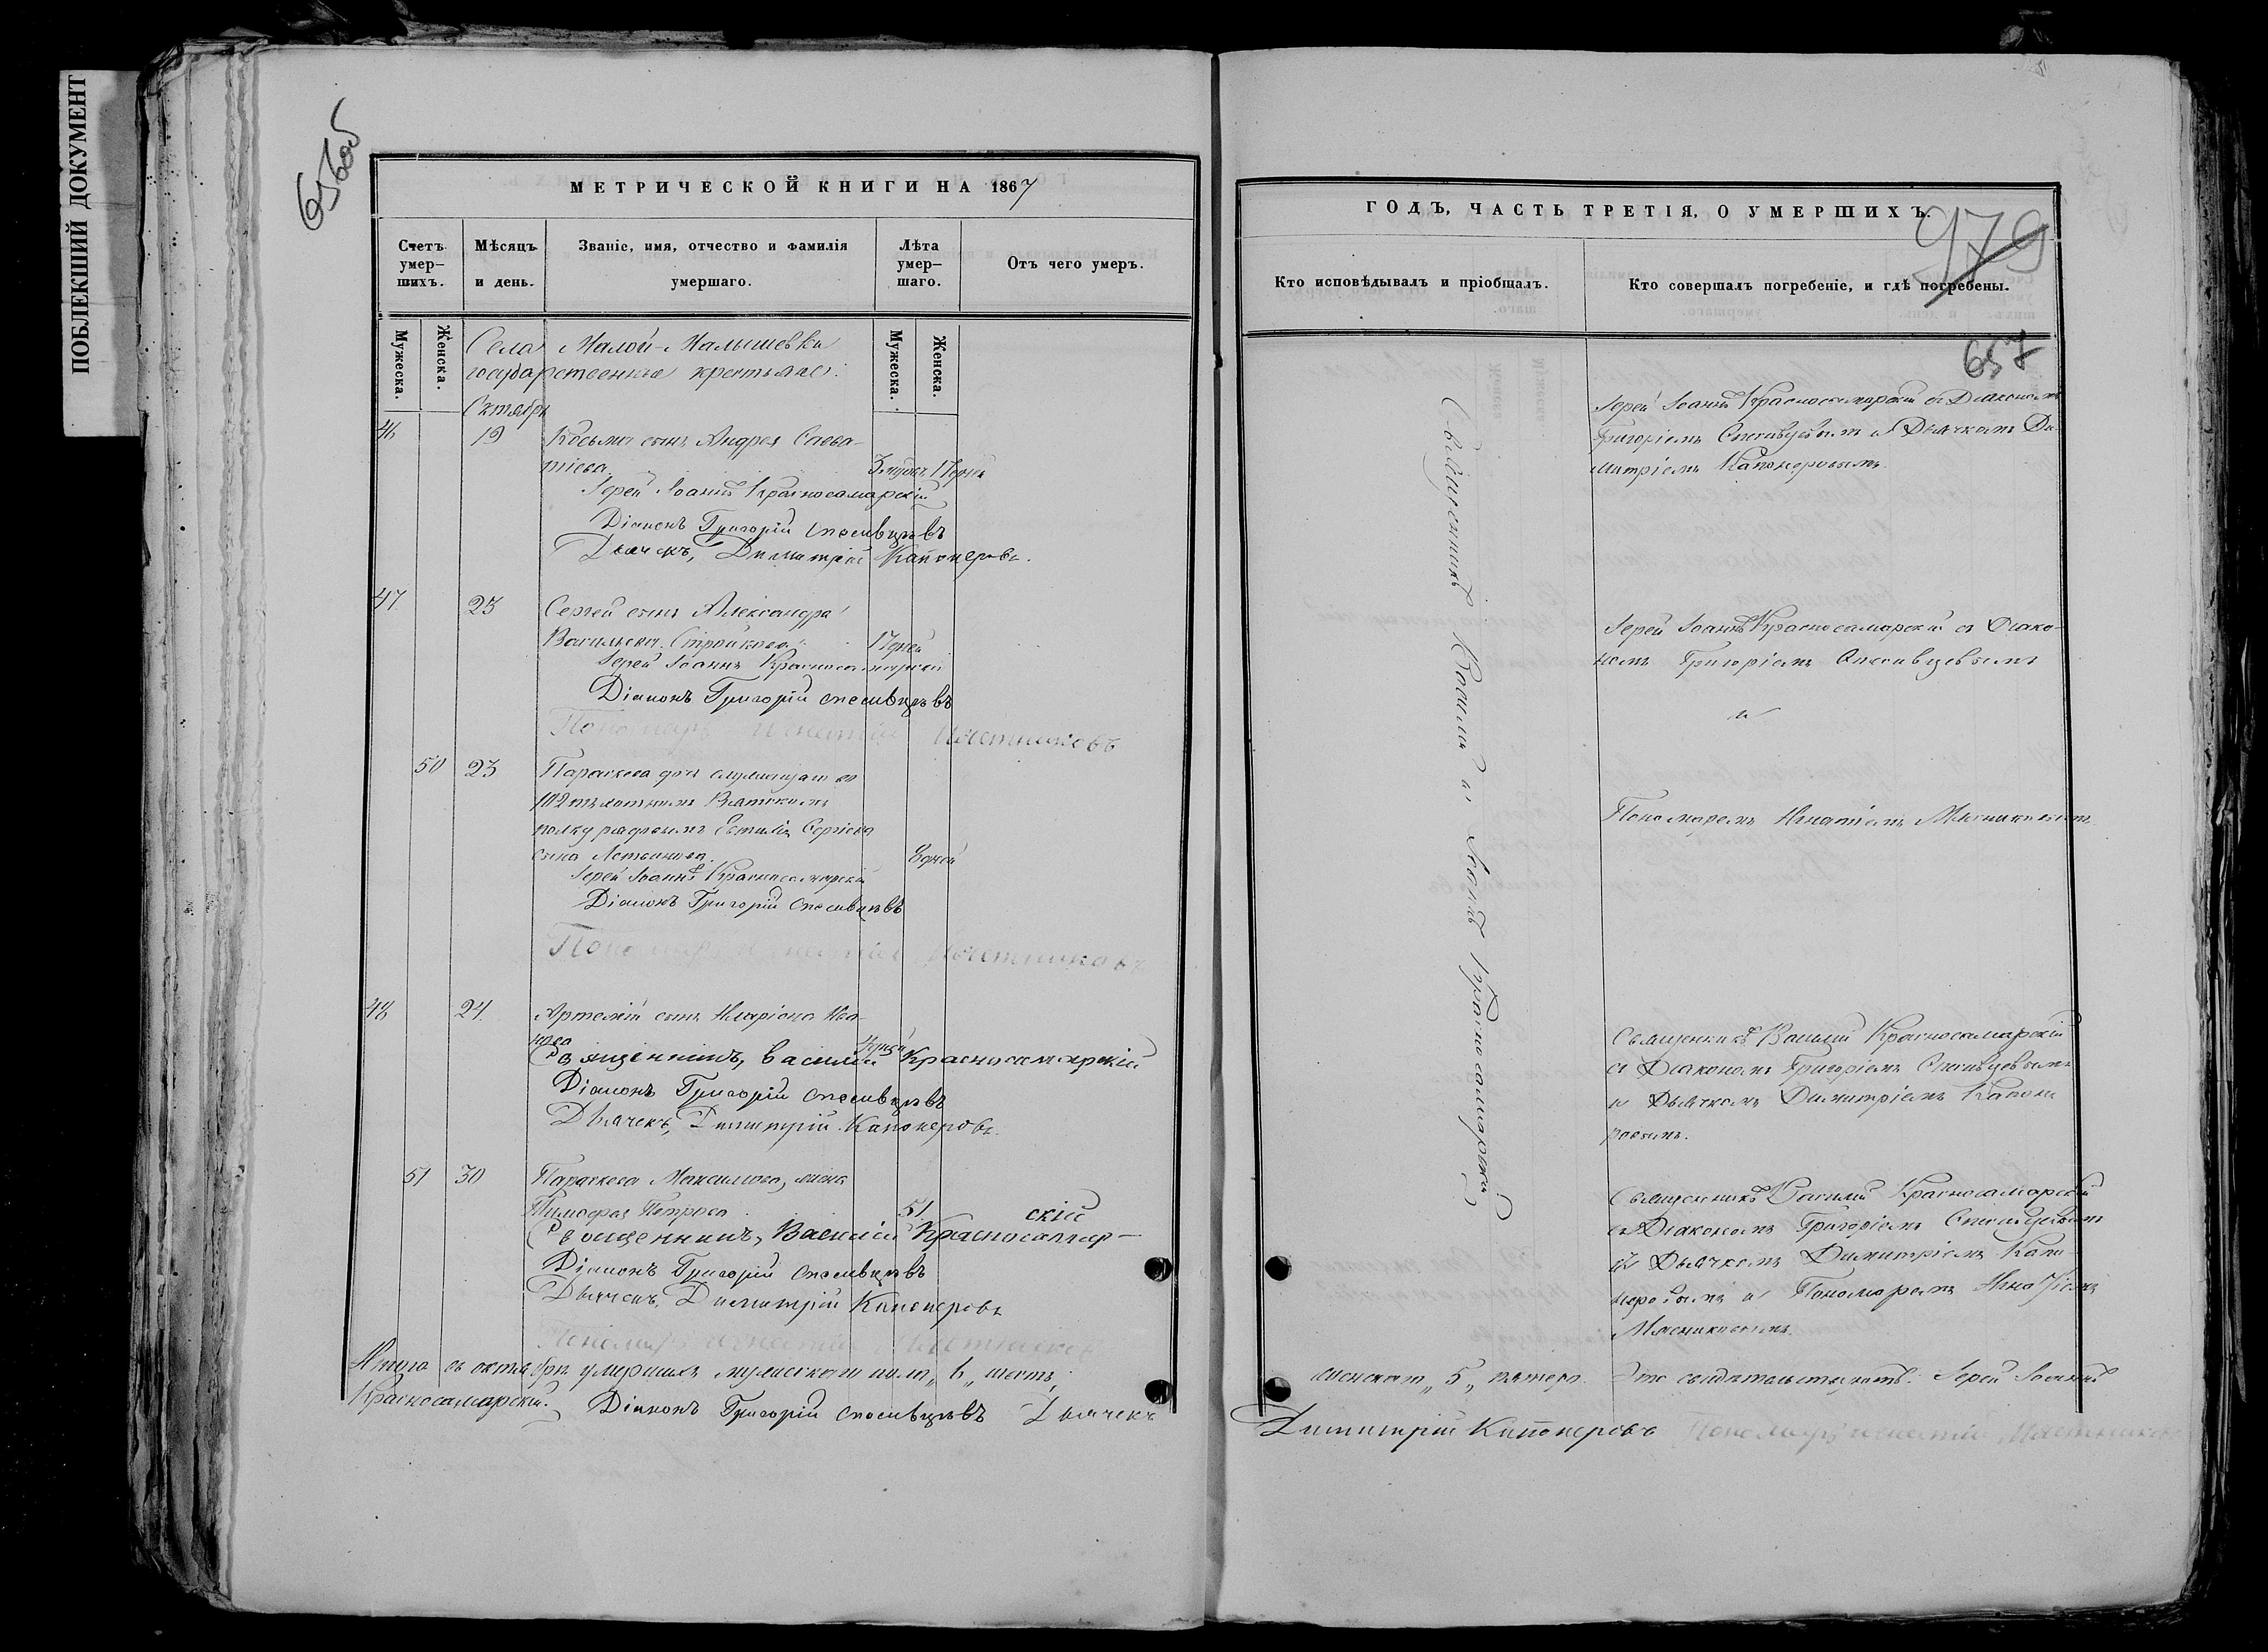 ПОБЛЕКШИЙ ДОКУМЕНТ
656об
МЕТРИЧЕСКОЙ КНИГИ НА 1867
Счетъ умер-шихъ.
Мѣсяцъ и день.
Званіе, имя, отчество и фамилія умершаго.
Лѣта умер-шаго.
Отъ чего умеръ.
Мужеска.
Женска.
Мужеска.
Женска.
Села Малой-Малышевки
государственные крестьяне:
Октябрь
46 19 Косьма сынъ Андрея Савва-
тіева
Іерей Іоаннъ Красносамарскій
Діаконъ Григорій Спесивцевъ
Дьячекъ, Димитрій Капонеровъ.
47 23 Сергей сынъ Александра
Васильева 17 дней
Іерей Іоаннъ Красносамарскій
Діаконъ Григорій Спесивцевъ
Пономарь Игнатій Мясниковъ
50 23 Параскева дочь служащаго въ
102 пѣхотномъ Вятскомъ
полку рядовымъ Сергіева
сына 8 дней
Іерей Іоаннъ Красносамарскій
Діаконъ Григорій Спесивцевъ
Пономарь Игнатій Мясниковъ
48 24 Артемій сынъ Иларіона Ива-
нова
Священникъ, Василій Красносамарскій
Діаконъ Григорій Спесивцевъ
Дьячекъ, Димитрій Капонеровъ.
51 30 Параскева Максимова, жена
Тимофея Петрова 51
Священникъ, Василій Красносамар-
скій
Діаконъ Григорій Спесивцевъ
Дьячекъ, Димитрій Капонеровъ
Пономарь Игнатій Мясниковъ
Итого въ октябрѣ умершихъ мужеска пола „6„ шесть,
Красносамарскій. Діаконъ Григорій Спесивцевъ Дьячекъ
ГОДЪ, ЧАСТЬ ТРЕТІЯ, О УМЕРШИХЪ.
979
Кто исповѣдывалъ и пріобщалъ.
Кто совершалъ погребеніе, и гдѣ погребены.
657
Священникъ Василій и Іоаннъ Красносамарскій
Іерей Іоаннъ Красносамарскій съ Діакономъ
Григоріемъ Спесивцевымъ и Дьячкомъ Ди-
митріемъ Капонеровымъ.
Іерей Іоаннъ Красносамарскій съ Діако-
номъ Григоріемъ Спесивцевымъ
и
Пономаремъ Игнатіемъ Мясниковымъ
Священникъ Василій Красносамарскій
съ Діакономъ Григоріемъ Спесивцевымъ
и Дьячкомъ Димитріемъ Капоне
ровымъ.
Священникъ Василій Красносамарскій
съ Діакономъ Григоріемъ Спесивцевымъ
и Дьячкомъ Димитріемъ Капо-
неровымъ и Пономаремъ Игнатіемъ
Мясниковымъ.
женска „5„ пятеро. Что свидѣтельствуютъ: Іерей Іоаннъ
Димитрій Капонеровъ Пономарь Игнатій Мясниковъ